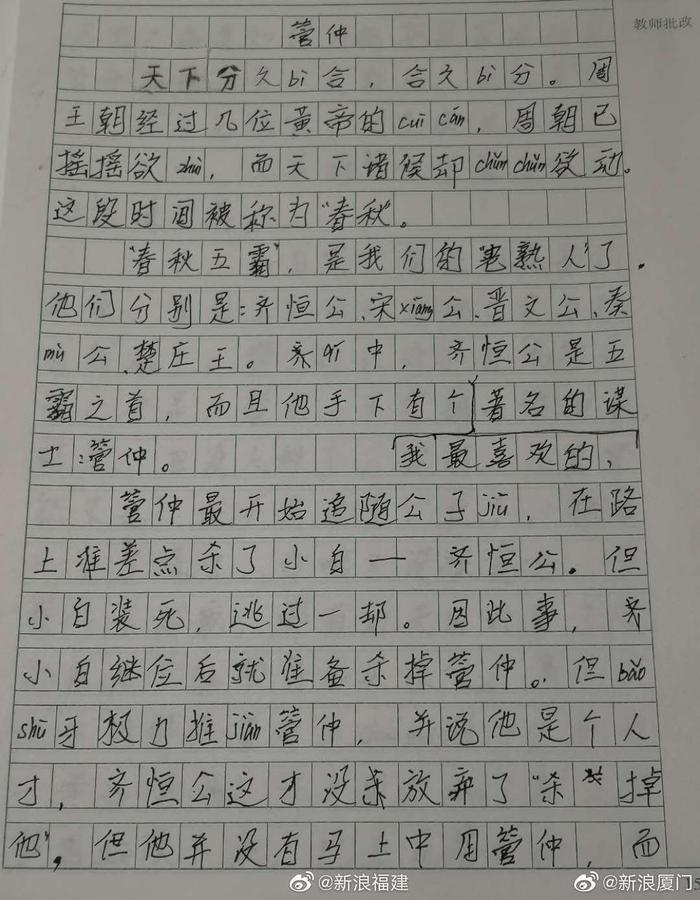 教师批改
管仲
天下分久bì合，合久bì分。周
王朝经过几位黄帝的cuī cán，周朝已
摇摇欲zhuì，而天下诸候却chǔn chǔn欲动。
这段时间被称为"春秋"。
"春秋五霸"，是我们的"老熟人"了。
他们分别是：齐恒公、宋xiāng公、晋文公、秦
mù公、楚庄王。其中，齐恒公是五
霸之首，而且他手下有个著名的谋
士：管仲。 我最喜欢的、
管仲最开始追随公子jiū，在路
上准差点杀了小白一齐恒公。但
小白装死，逃过一却。因此事，齐
小白继位后就准备杀掉管仲。但bào
shū牙极力推jiàn管仲，并说他是个人
才，齐恒公这才没杀放弃了"杀掉
他"。但他并没有马上中用管仲，而
@新浪福建
@新浪厦门